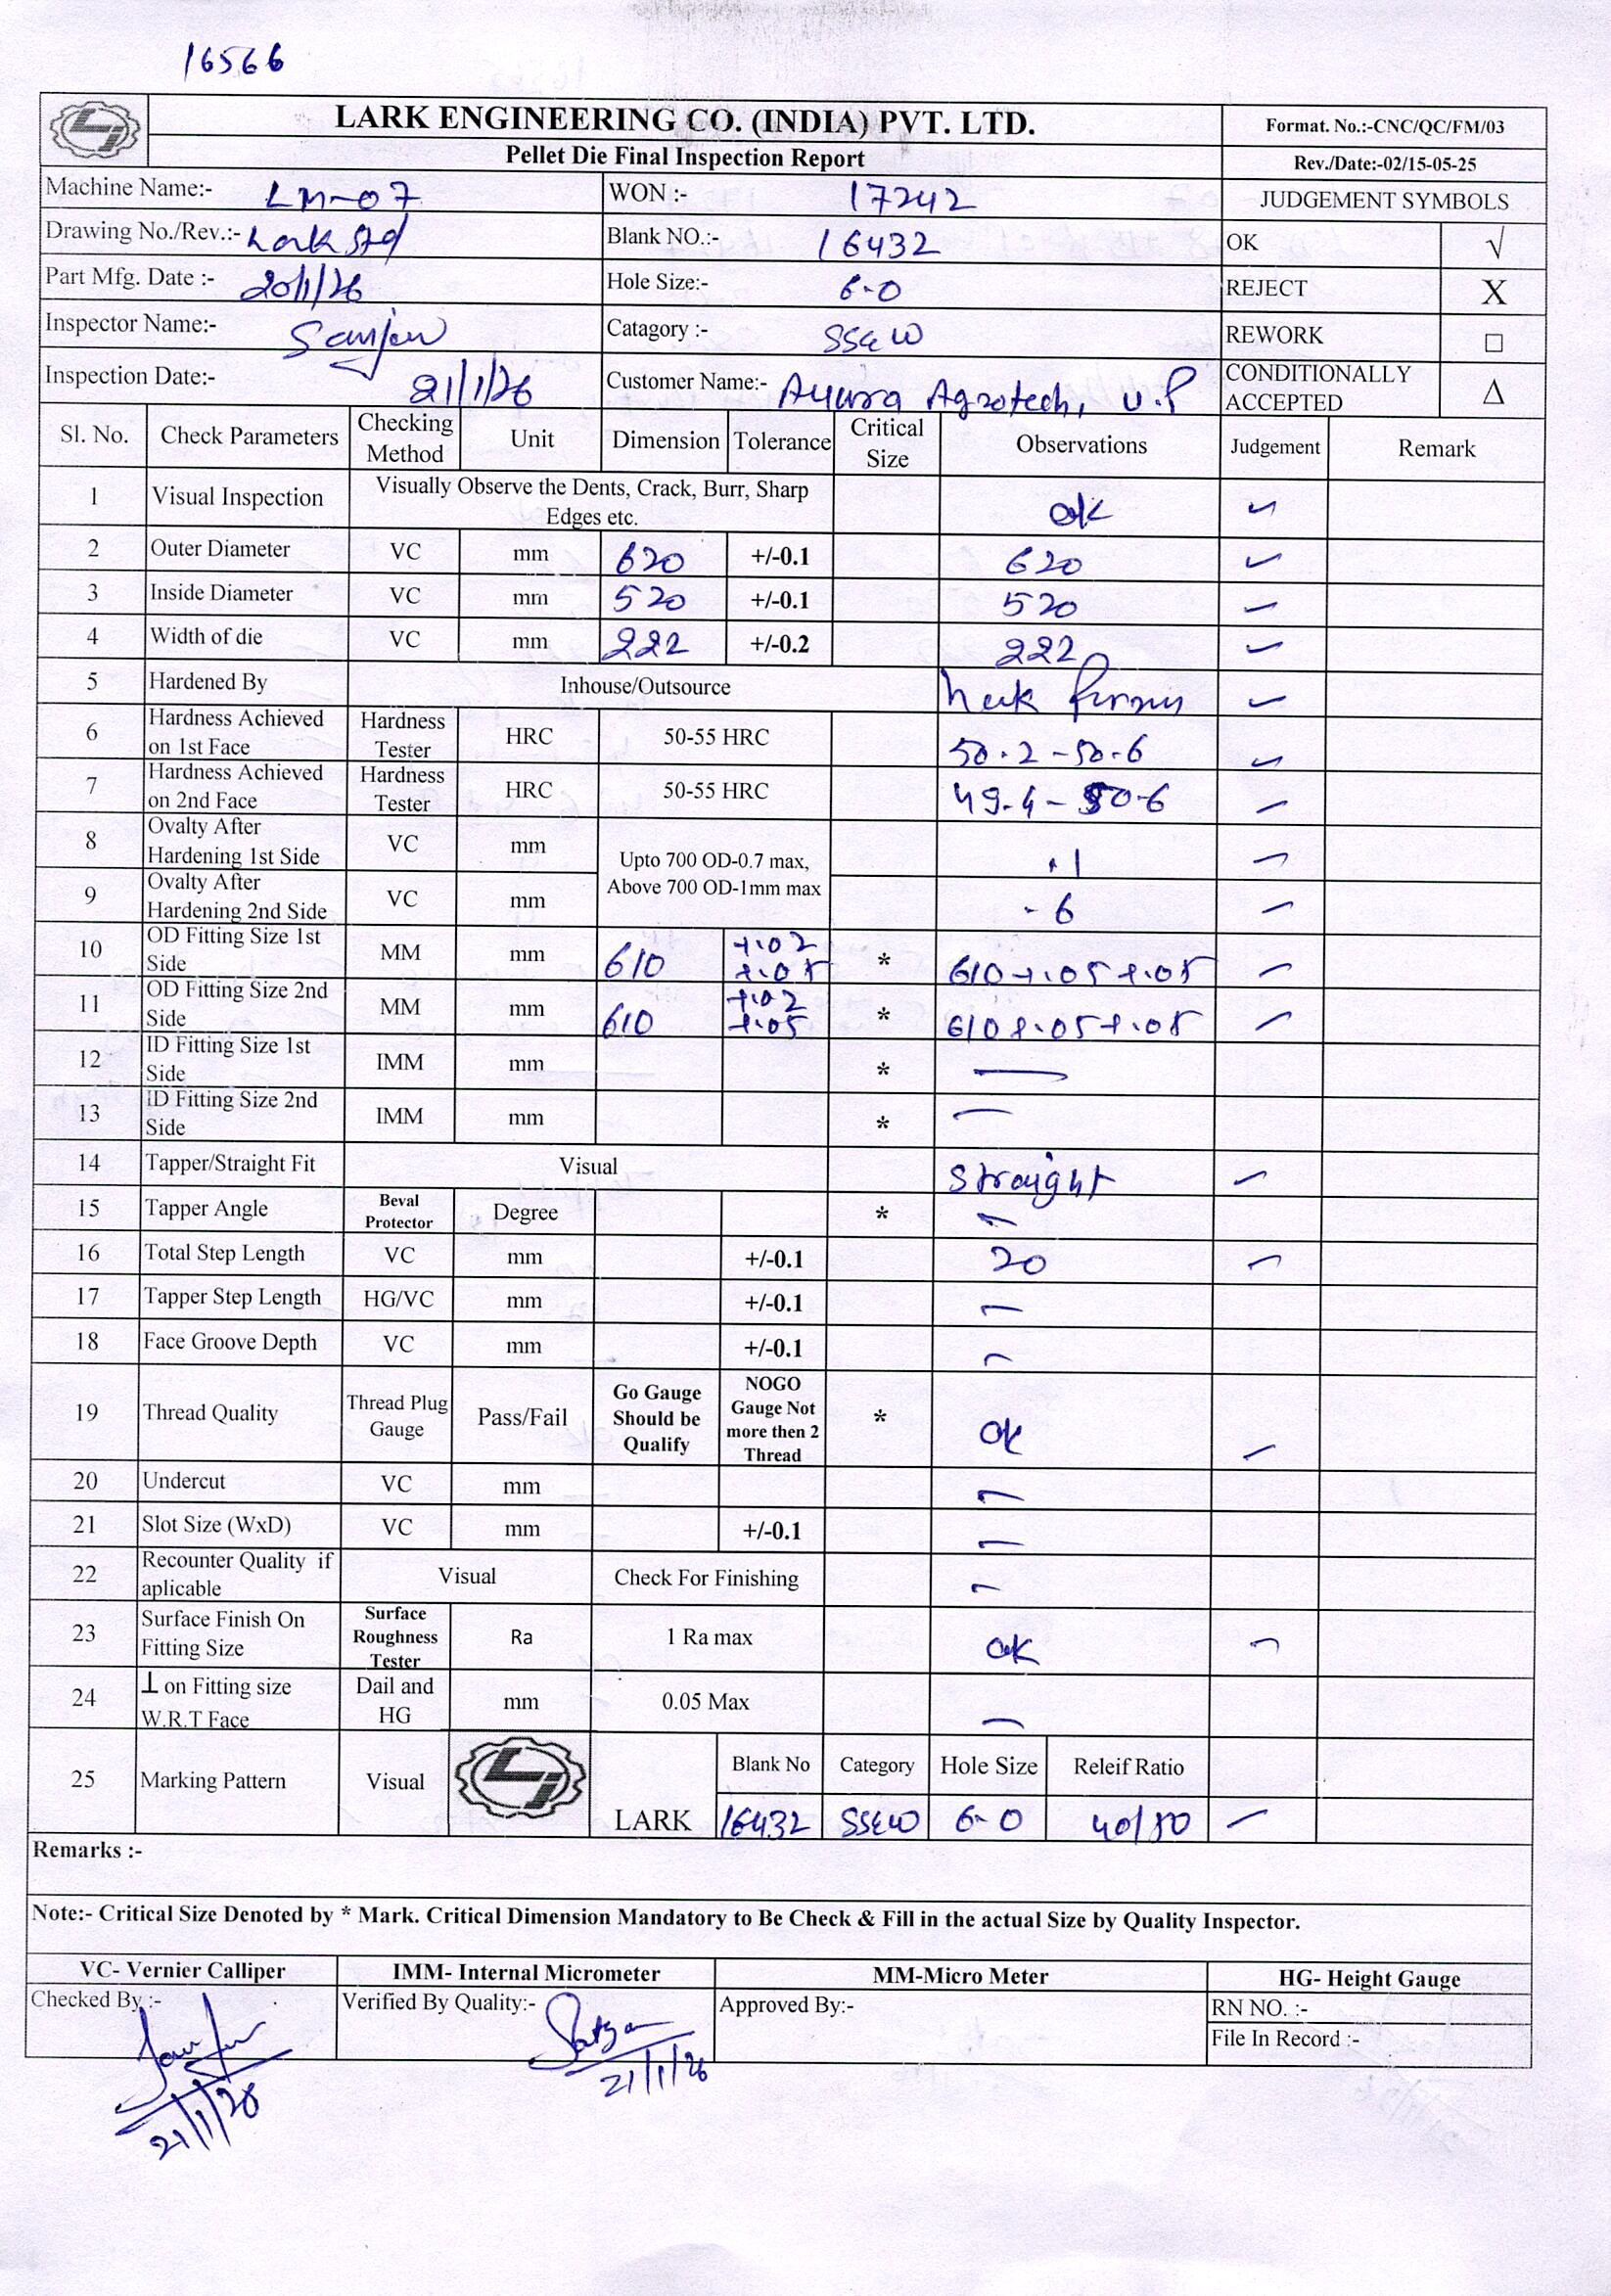 16566
LARK ENGINEERING CO. (INDIA) PVT. LTD.
Format. No.:-CNC/QC/FM/03
Pellet Die Final Inspection Report
Rev./Date:-02/15-05-25
Machine Name:- LM-07 WON :- 17242 JUDGEMENT SYMBOLS
Drawing No./Rev.:- Lark Std Blank NO.:- 16432 OK √
Part Mfg. Date :- 20/1/26 Hole Size:- 6.0 REJECT X
Inspector Name:- Sanjeev Catagory :- SS&W REWORK □
Inspection Date:- 21/1/26 Customer Name:- Agrotech, U.P CONDITIONALLY ACCEPTED Δ
Sl. No. Check Parameters Checking Method Unit Dimension Tolerance Critical Size Observations Judgement Remark
1 Visual Inspection Visually Observe the Dents, Crack, Burr, Sharp Edges etc. ok ✓
2 Outer Diameter VC mm 620 +/-0.1 620 ✓
3 Inside Diameter VC mm 520 +/-0.1 520 ✓
4 Width of die VC mm 222 +/-0.2 222 ✓
5 Hardened By Inhouse/Outsource ✓
6 Hardness Achieved on 1st Face Hardness Tester HRC 50-55 HRC 50.2 - 50.6 ✓
7 Hardness Achieved on 2nd Face Hardness Tester HRC 50-55 HRC 49.4 - 50.6 ✓
8 Ovalty After Hardening 1st Side VC mm Upto 700 OD-0.7 max, Above 700 OD-1mm max .1 ✓
9 Ovalty After Hardening 2nd Side VC mm .6 ✓
10 OD Fitting Size 1st Side MM mm 610 +.02 +.05 * 610 +.05 +.05 ✓
11 OD Fitting Size 2nd Side MM mm 610 +.02 +.05 * 610 +.05 +.05 ✓
12 ID Fitting Size 1st Side IMM mm * —
13 ID Fitting Size 2nd Side IMM mm * —
14 Tapper/Straight Fit Visual Straight ✓
15 Tapper Angle Beval Protector Degree * —
16 Total Step Length VC mm +/-0.1 20 ✓
17 Tapper Step Length HG/VC mm +/-0.1 —
18 Face Groove Depth VC mm +/-0.1 —
19 Thread Quality Thread Plug Gauge Pass/Fail Go Gauge Should be Qualify NOGO Gauge Not more then 2 Thread * ok ✓
20 Undercut VC mm —
21 Slot Size (WxD) VC mm +/-0.1 —
22 Recounter Quality if aplicable Visual Check For Finishing —
23 Surface Finish On Fitting Size Surface Roughness Tester Ra 1 Ra max ok ✓
24 ⊥ on Fitting size W.R.T Face Dail and HG mm 0.05 Max —
25 Marking Pattern Visual LARK Blank No Category Hole Size Releif Ratio
16432 SS&W 6.0 40/80 ✓
Remarks :-
Note:- Critical Size Denoted by * Mark. Critical Dimension Mandatory to Be Check & Fill in the actual Size by Quality Inspector.
VC- Vernier Calliper IMM- Internal Micrometer MM-Micro Meter HG- Height Gauge
Checked By :- Verified By Quality:- Approved By:- RN NO. :-
File In Record :-
21/1/26 21/1/26